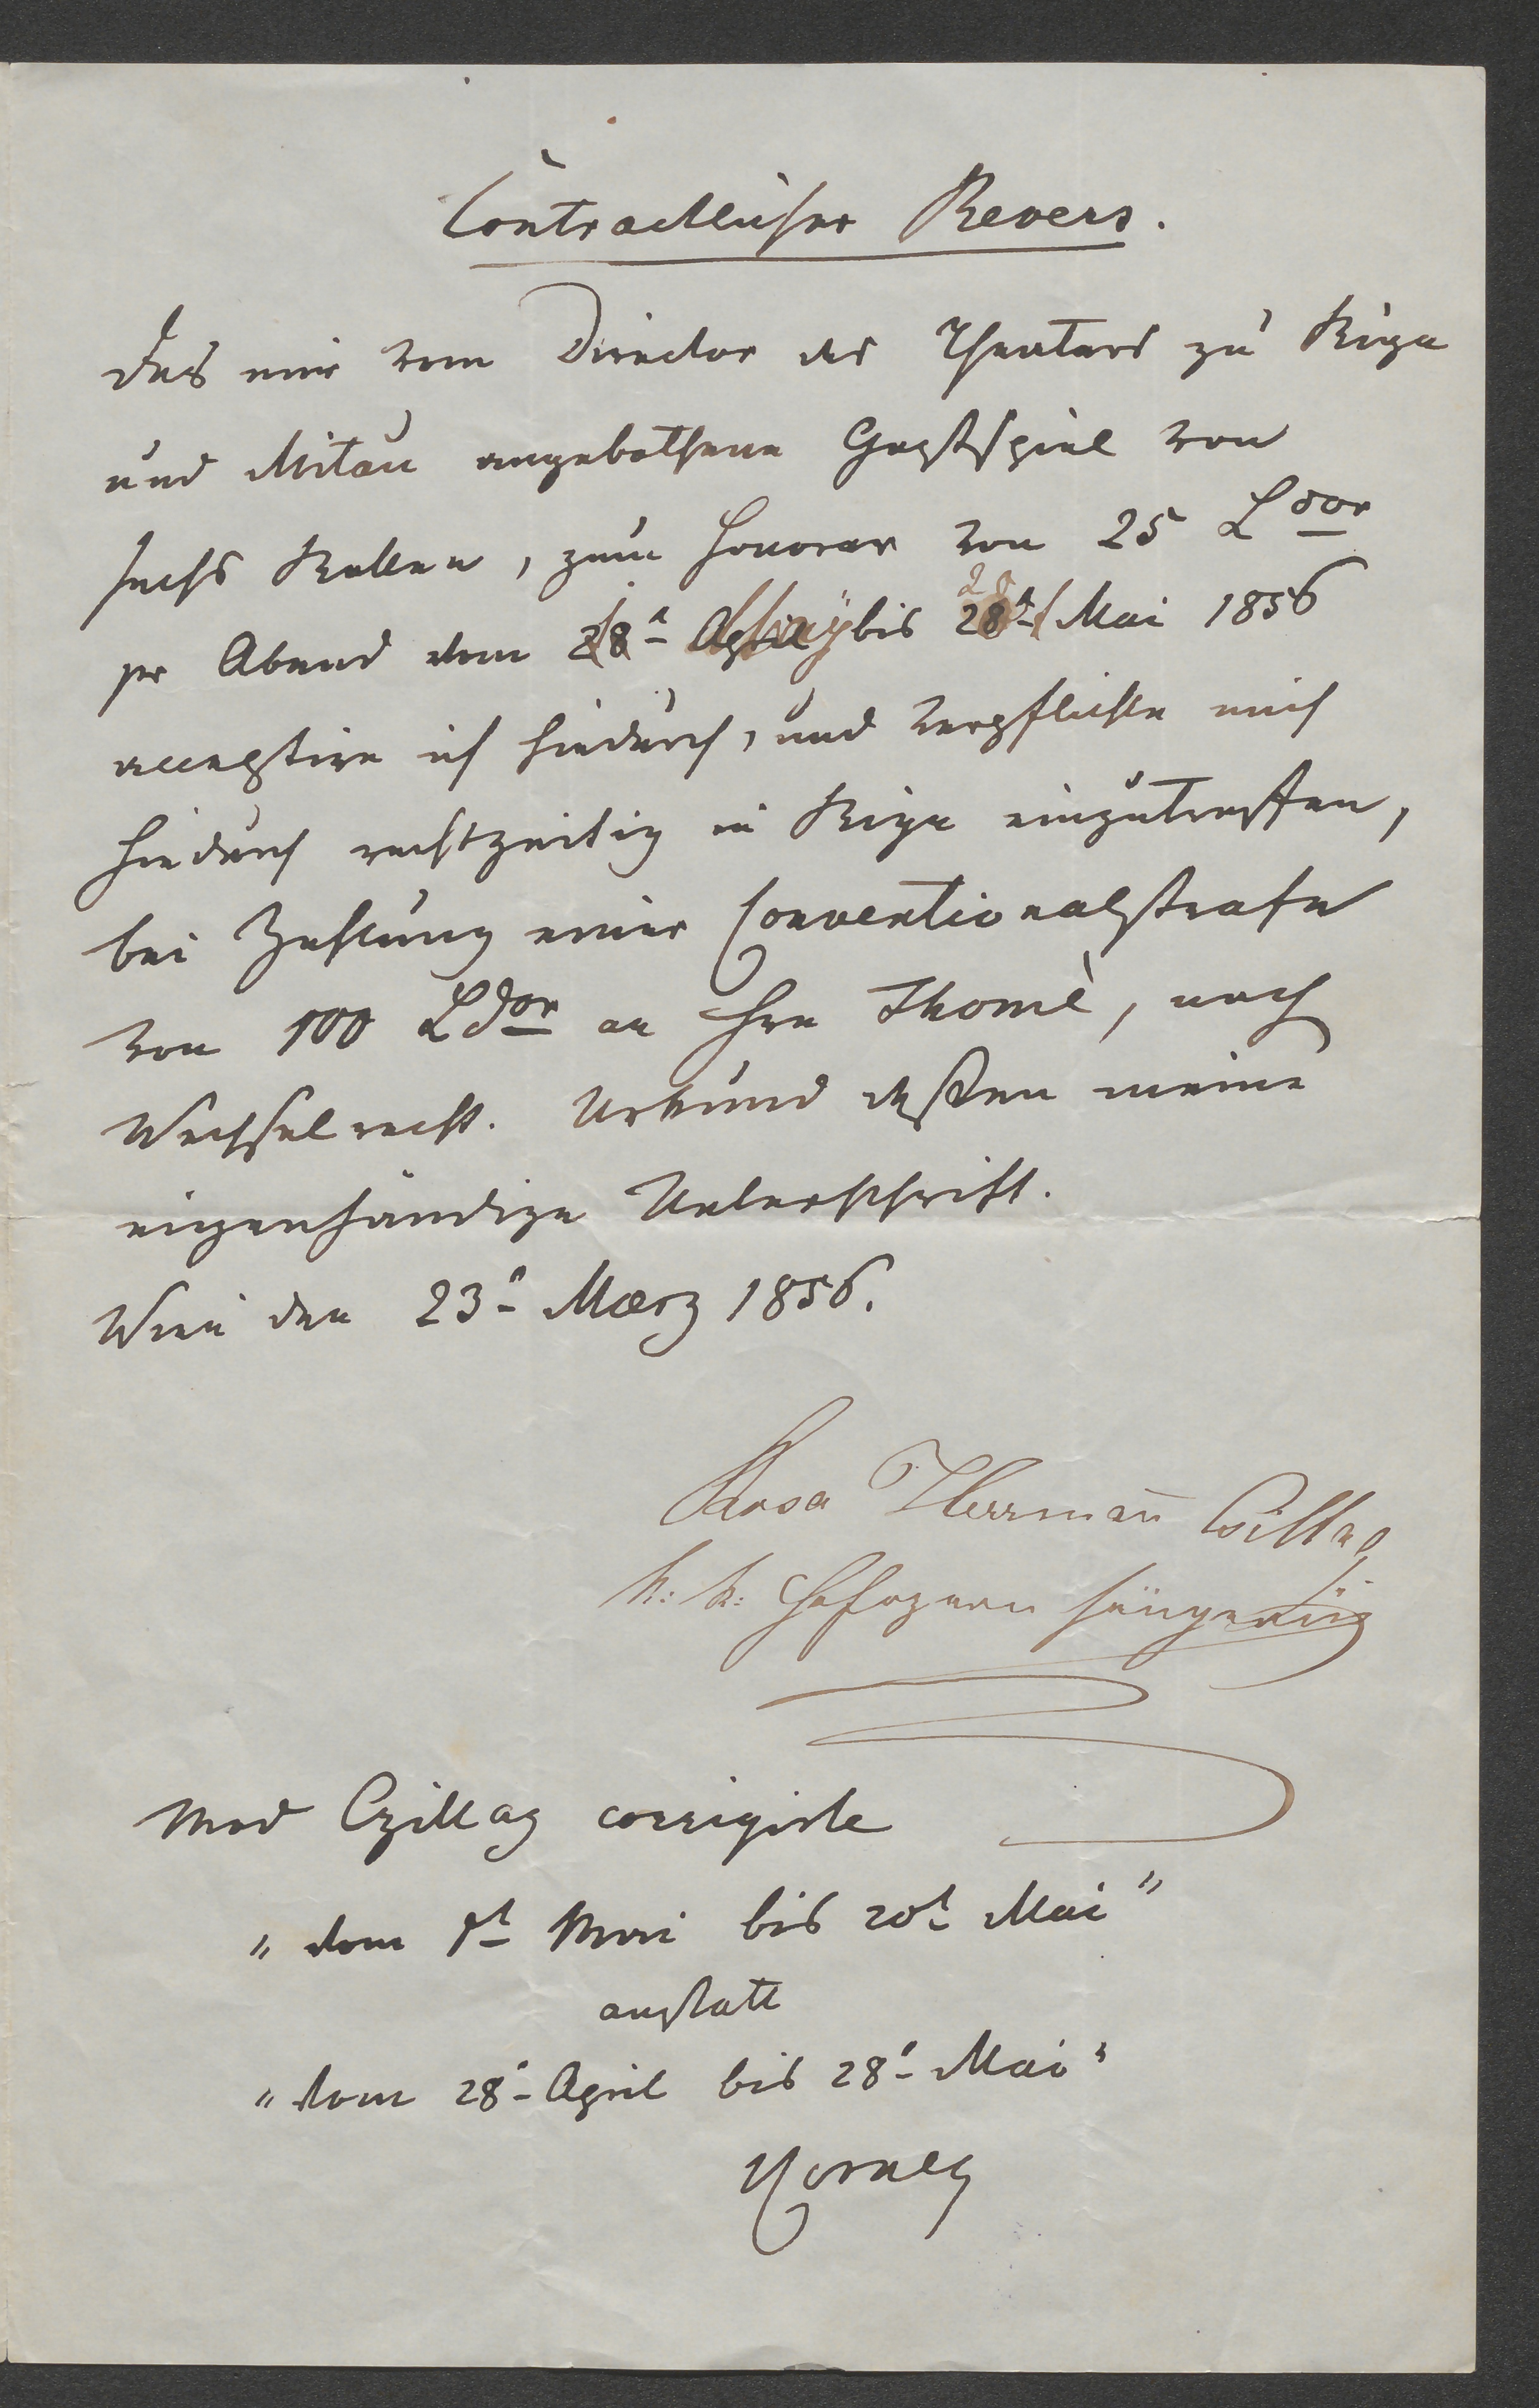 Contractlicher Revers.
Das mir vom Director des Theaters zu Riga
und Mitau angebothene Gastspiel von
sechs Rollen, zum Honorar von 25 Ldor
pr Abend vom 28t April bis 28t Mai 1856
20
acceptire ich hiedurch, und verpflichte mich
hiedurch rechtzeitig in Riga einzutreffen,
bei Zahlung einer Conventionalstrafe
von 100 Ldor an Hrn Thomè, nach
Wechselrecht. Urkund dessen meine
eigenhändige Unterschrift.
Wien den 23t Maerz 1856.
Rosa Herrman̄ Csillag
k: k: Hofopern sängerin
Mad Czillag corrigirte
„vom 1t Mai bis 20t Mai"
anstatt
„vom 28t April bis 28t Mai"